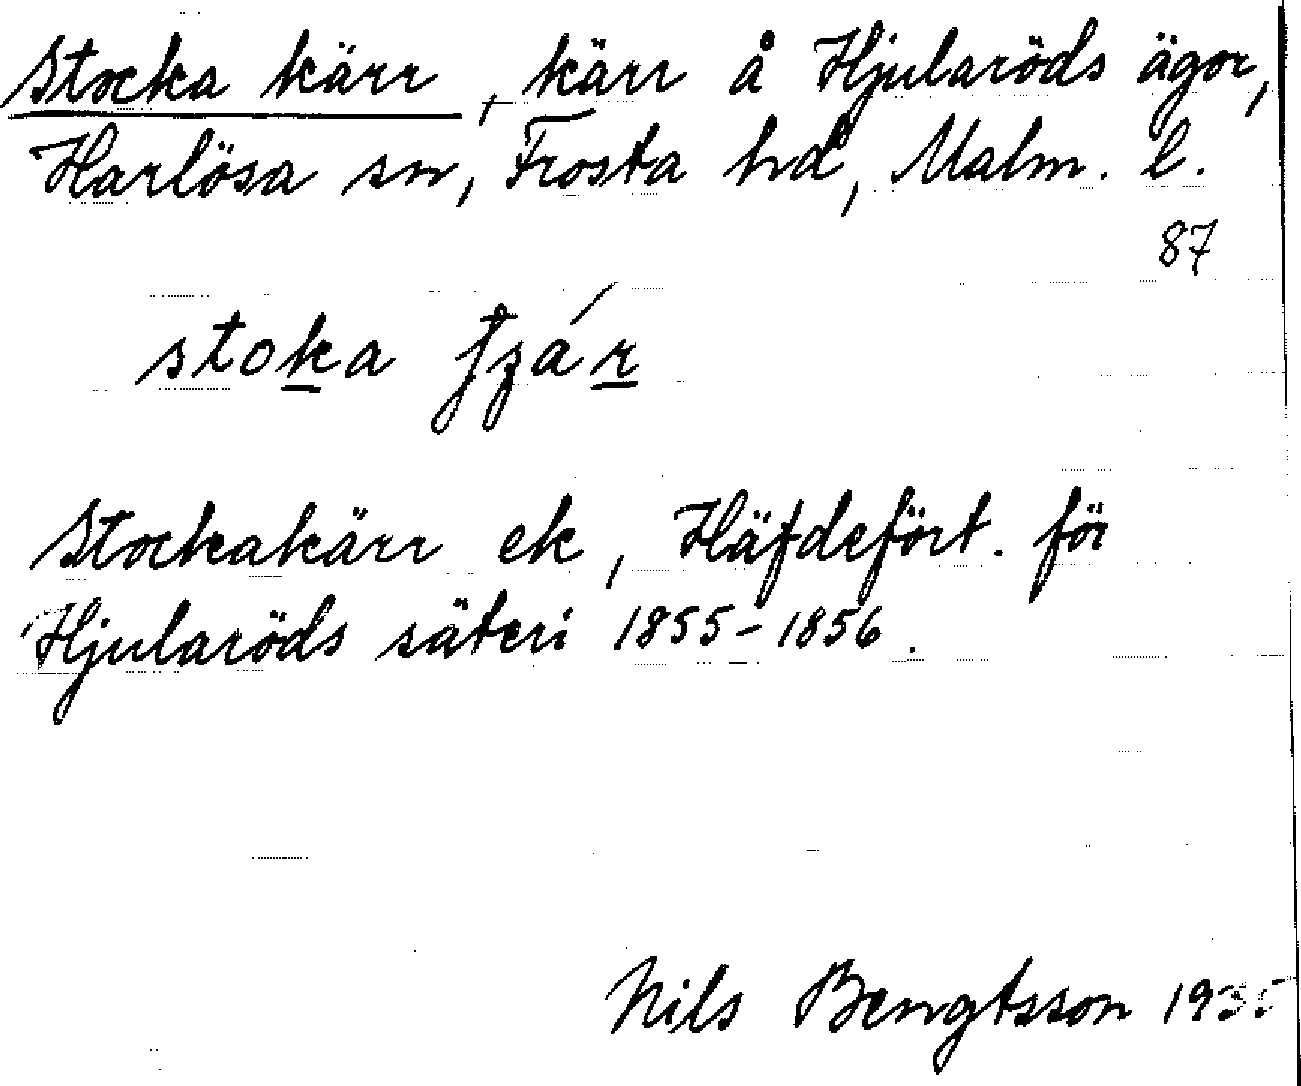 Stocka kärr, kärr å Hjularöds ägor,
Harlösa sn, Frosta hd, Malm. l.
87
stoka
Stockakärr ek, Häfdefört. för
Hjularöds säteri 1855-1856.
Nils Bengtsson 1935